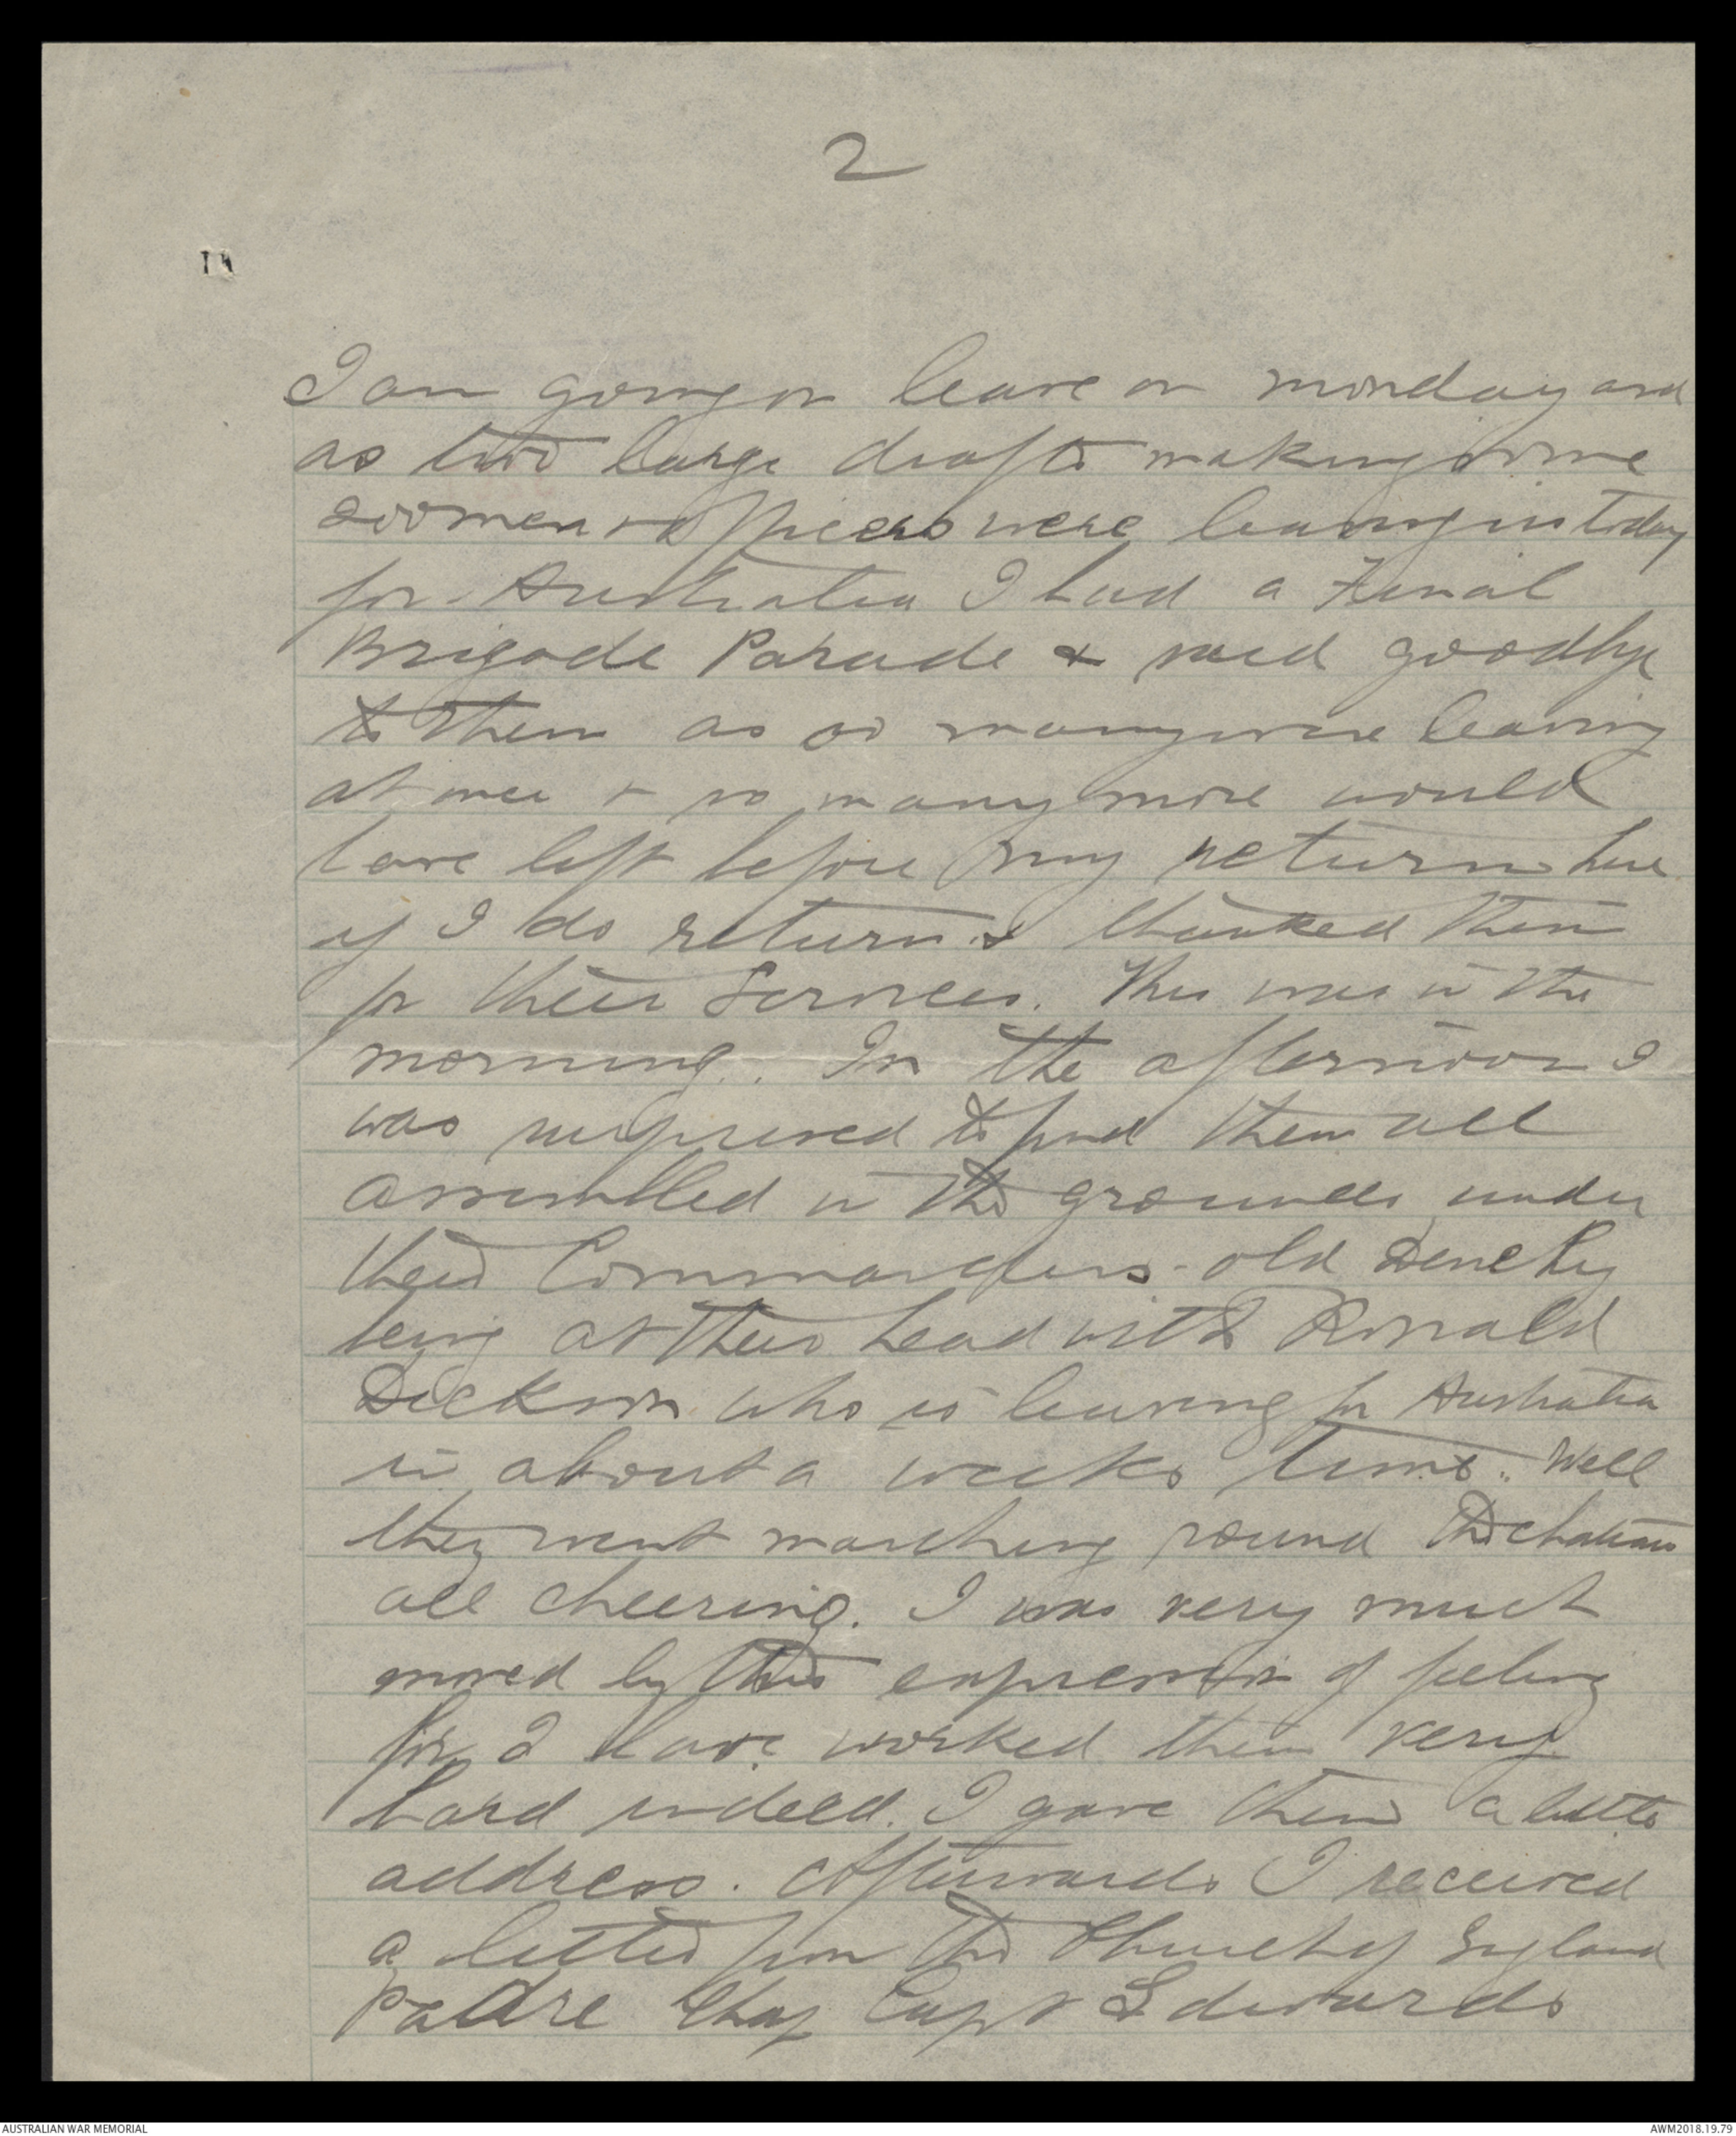 2
I am going on leave on monday and
as two large drafts making some
200 men & officers were leaving us today
for Australia I had a Final
Brigade Parade & said goodbye
to them as so many were leaving
at once & so many more would
have left before my return here
if I do return & thanked them
for their Services. This was in the
morning. In the afternoon I
was surprised to find them all
assembled in the grounds under
their Commanders - old Denehy
being at their head with Ronald
Dickson who is leaving for Australia
in about a weeks time. Well
they went marching round the chateau
all cheering. I was very much
moved by this expression of feeling
for I have worked them very
hard indeed. I gave them a little
address. Afterwards I received
a letter from the Church of England
Padre Chap Capt Edwards
AUSTRALIAN WAR MEMORIAL
AWM2018.19.79